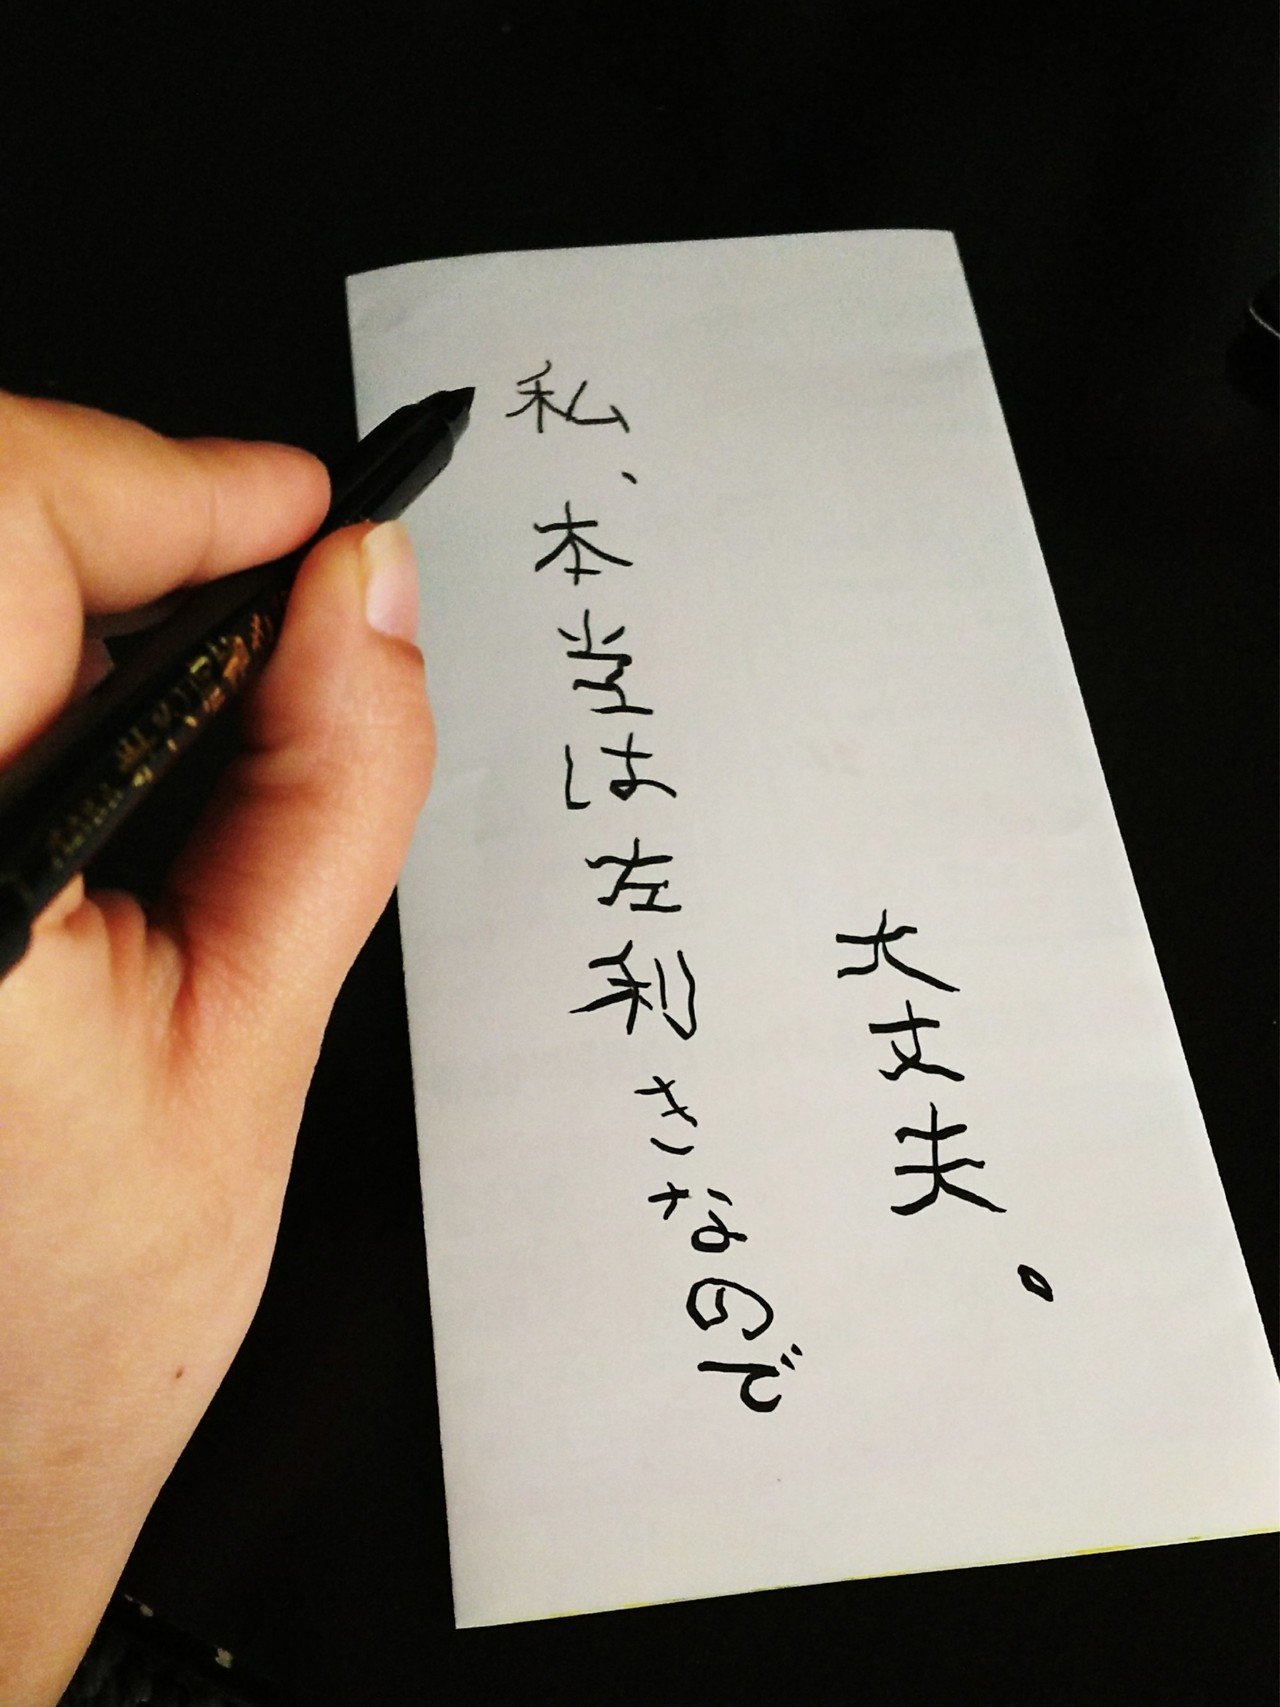 私、本当は左利きなので
大丈夫。